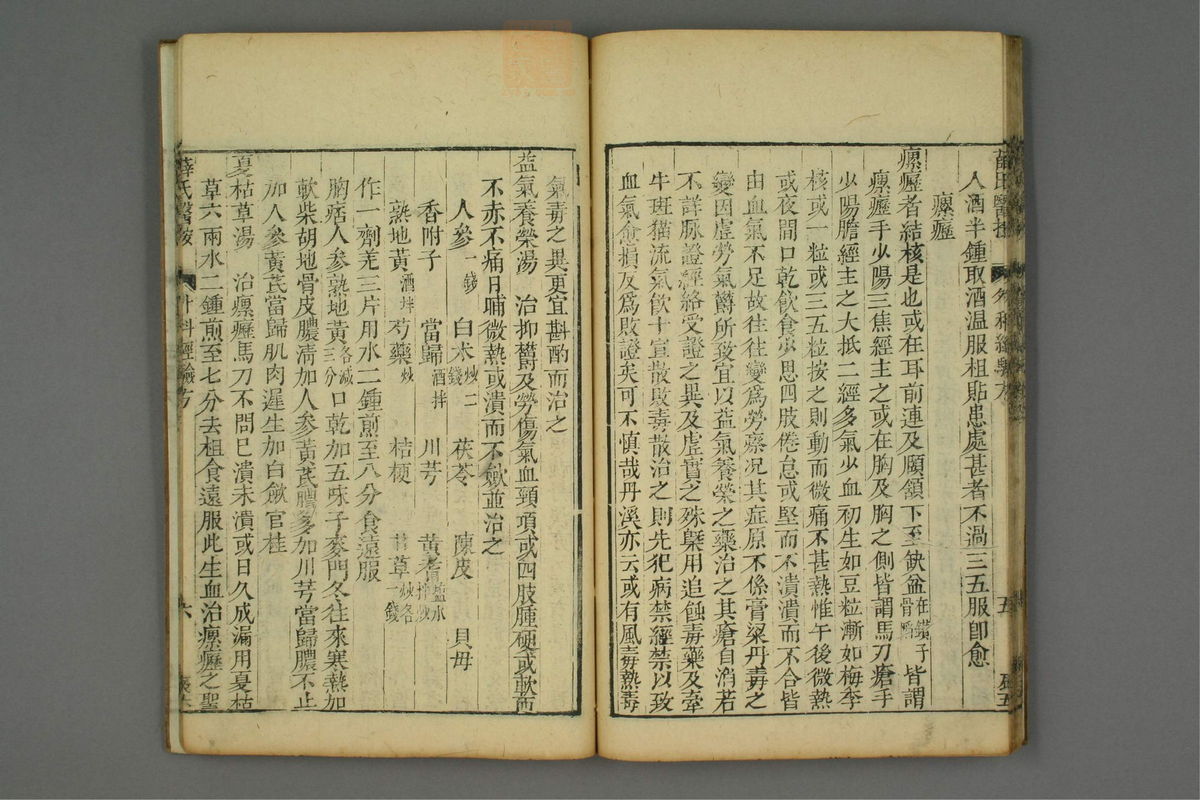 薛氏醫按 外科經驗方 五
人酒半鍾取酒溫服柤貼患處甚者不過三五服卽愈
瘰癧
瘰癧者結核是也或在耳前連及頤頷下至缺盆在鎖子骨皆謂
瘰癧手少陽三焦經主之或在胸及胸之側皆謂馬刀瘡手
少陽膽經主之大抵二經多氣少血初生如豆粒漸如梅李
核或一粒或三五粒按之則動而微痛不甚熱惟午後微熱
或夜間口乾飲食少思四肢倦怠或堅而不潰潰而不合皆
由血氣不足故往往變爲勞瘵况其症原不係膏粱丹毒之
變因虛勞氣欝所致宜以益氣養榮之藥治之其瘡自消若
不詳脉證經絡受證之異及虛實之殊槩用追蝕毒藥及牽
牛斑猫流氣飲十宣散敗毒散治之則先犯病禁經禁以致
血氣愈損反爲敗證矣可不慎哉丹溪亦云或有風毒熱毒
氣毒之異更宜斟酌而治之
益氣養榮湯 治抑欝及勞傷氣血頸項或四肢腫硬或軟而
不赤不痛日晡微熱或潰而不斂並治之
人參一錢 白朮炒二錢 茯苓 陳皮 貝母
香附子 當歸酒拌 川芎 黃耆鹽水拌炒
熟地黃酒拌 芍藥炒 桔梗 甘草炒各一錢
作一劑羌三片用水二鍾煎至八分食遠服
胸痞人參熟地黃各減三分口乾加五味子麥門冬往來寒熱加
軟柴胡地骨皮膿淸加人參黃茋膿多加川芎當歸膿不止
加人參黃茋當歸肌肉遲生加白斂官桂
夏枯草湯 治瘰癧馬刀不問已潰未潰或日久成漏用夏枯
草六兩水二鍾煎至七分去柤食遠服此生血治瘰癧之聖
薛氏醫按 外科經驗方 六